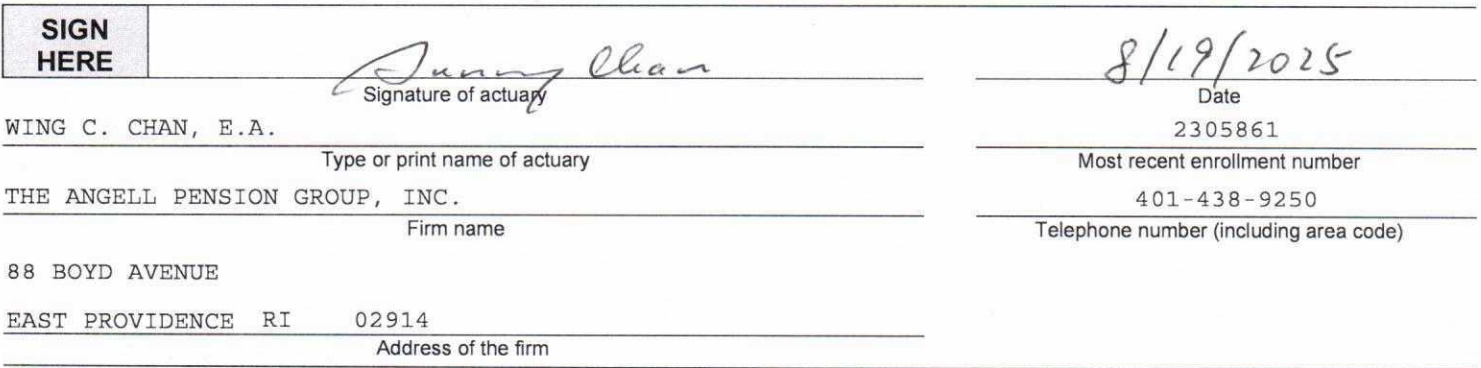 SIGN
HERE
Sunny Chan
8/19/2025
Signature of actuary
Date
WING C. CHAN, E.A.
2305861
Type or print name of actuary
Most recent enrollment number
THE ANGELL PENSION GROUP, INC.
401-438-9250
Firm name
Telephone number (including area code)
88 BOYD AVENUE
EAST PROVIDENCE RI 02914
Address of the firm